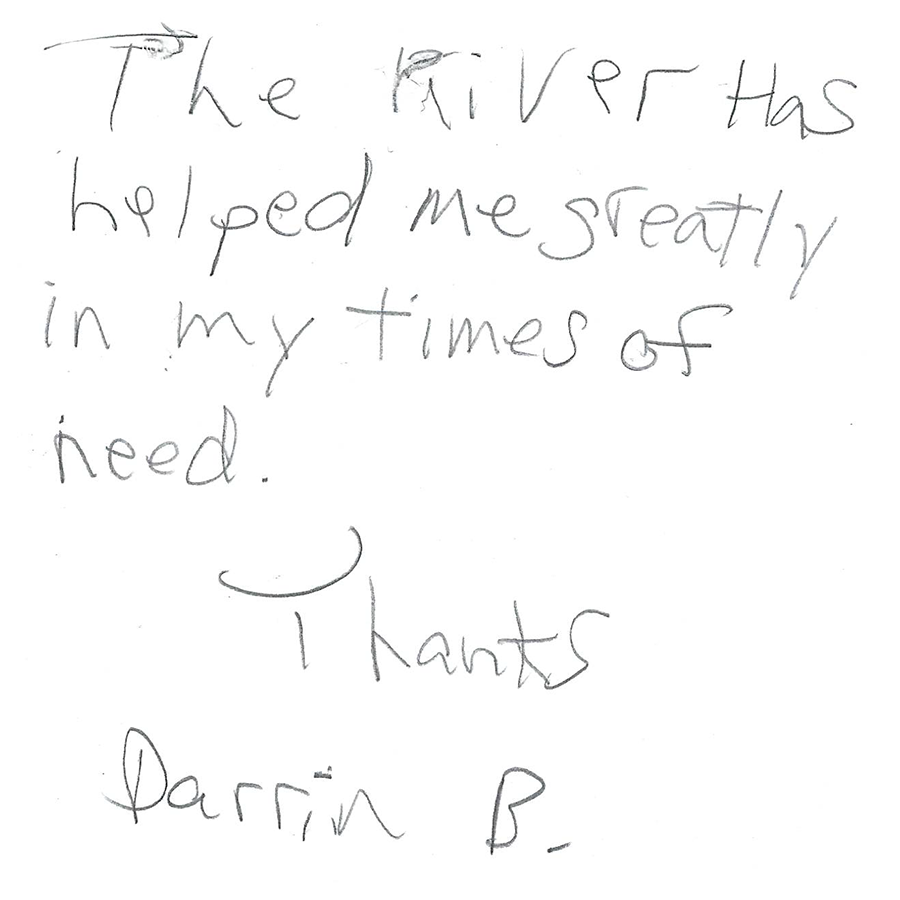 The River Has
helped me greatly
in my times of
need.
Thanks
Darrin B.